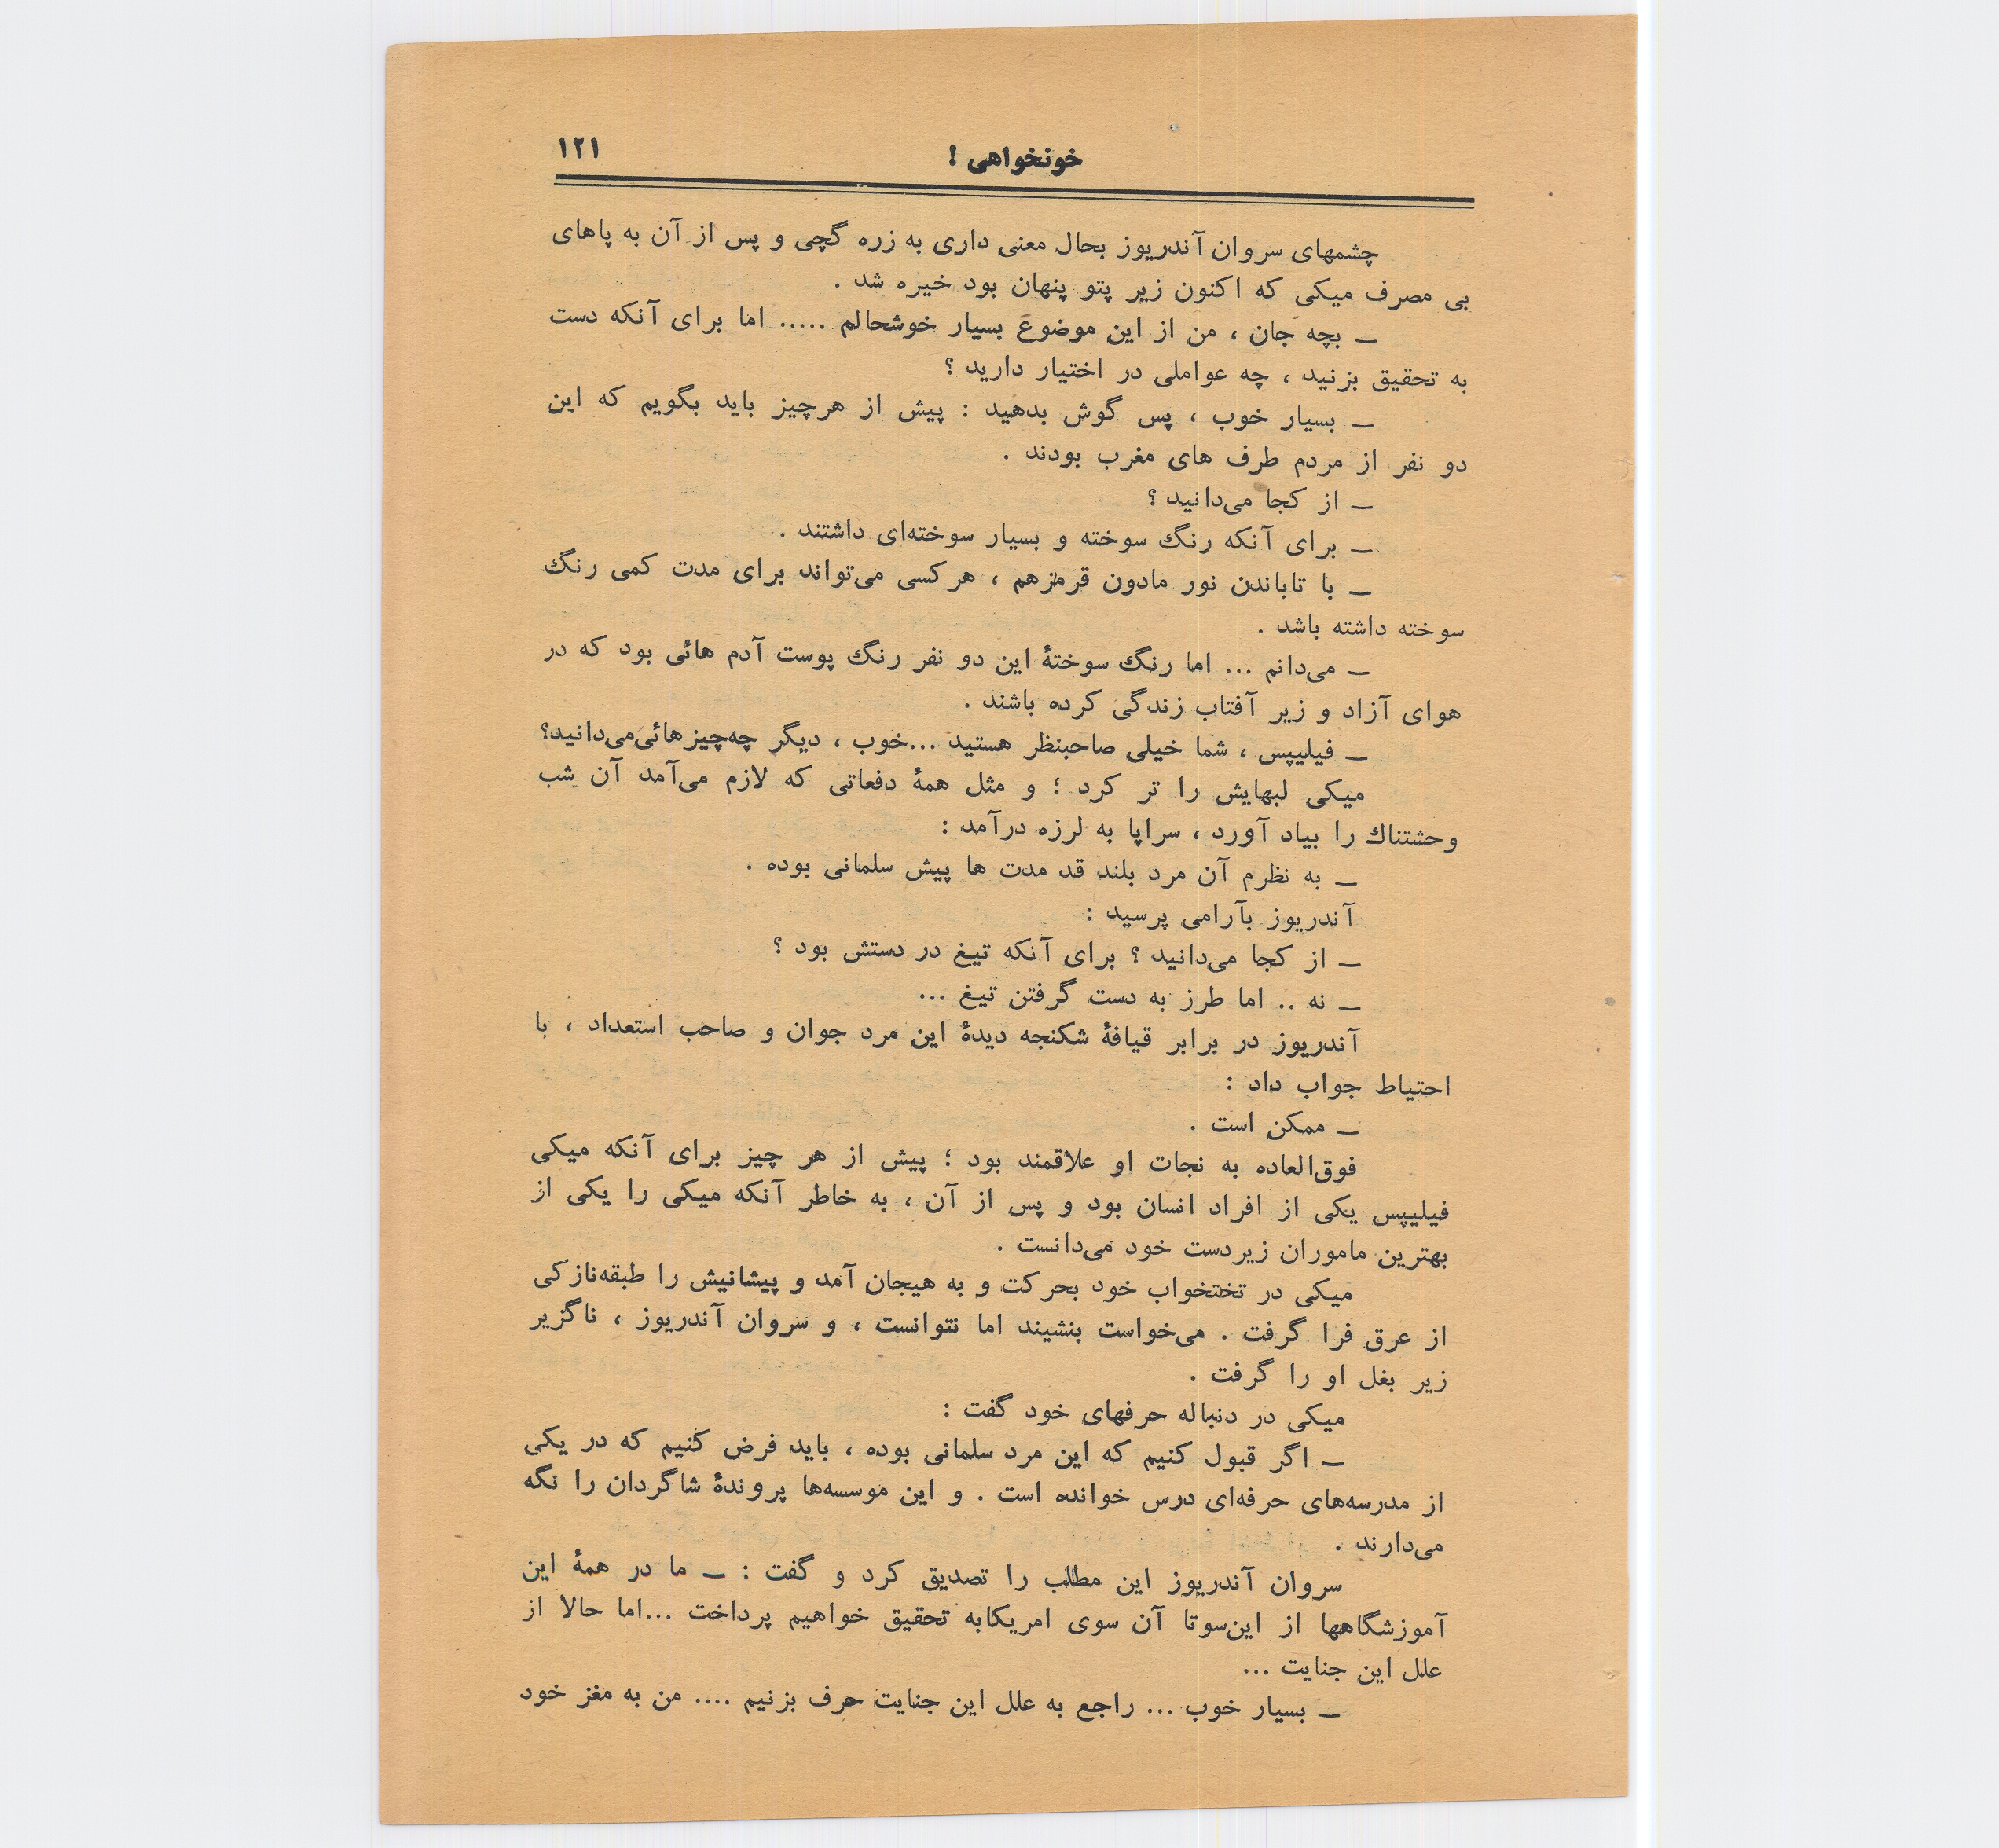 خونخواهی !
۱۲۱
چشمهای سروان آندریوز بحال معنی داری به زره گچی و پس از آن به پاهای
بی مصرف میکی که اکنون زیر پتو پنهان بود خیره شد .
ــ بچه جان ، من از این موضوع بسیار خوشحالم ..... اما برای آنکه دست
به تحقیق بزنید ، چه عواملی در اختیار دارید ؟
ــ بسیار خوب ، پس گوش بدهید : پیش از هرچیز باید بگویم که این
دو نفر از مردم طرف های مغرب بودند .
ــ از کجا می‌دانید ؟
ــ برای آنکه رنگ سوخته و بسیار سوخته‌ای داشتند .
ــ با تاباندن نور مادون قرمزهم ، هرکسی می‌تواند برای مدت کمی رنگ
سوخته داشته باشد .
ــ می‌دانم ... اما رنگ سوختهٔ این دو نفر رنگ پوست آدم هائی بود که در
هوای آزاد و زیر آفتاب زندگی کرده باشند .
ــ فیلیپس ، شما خیلی صاحبنظر هستید ...خوب ، دیگر چه‌چیزهائی‌می‌دانید؟
میکی لبهایش را تر کرد ؛ و مثل همهٔ دفعاتی که لازم می‌آمد آن شب
وحشتناك را بیاد آورد ، سراپا به لرزه درآمد :
ــ به نظرم آن مرد بلند قد مدت ها پیش سلمانی بوده .
آندریوز بآرامی پرسید :
ــ از کجا می‌دانید ؟ برای آنکه تیغ در دستش بود ؟
ــ نه .. اما طرز به دست گرفتن تیغ ...
آندریوز در برابر قیافهٔ شکنجه دیدهٔ این مرد جوان و صاحب استعداد ، با
احتیاط جواب داد :
ــ ممکن است .
فوق‌العاده به نجات او علاقمند بود ؛ پیش از هر چیز برای آنکه میکی
فیلیپس یکی از افراد انسان بود و پس از آن ، به خاطر آنکه میکی را یکی از
بهترین ماموران زیردست خود می‌دانست .
میکی در تختخواب خود بحرکت و به هیجان آمد و پیشانیش را طبقه‌نازکی
از عرق فرا گرفت . می‌خواست بنشیند اما نتوانست ، و سروان آندریوز ، ناگزیر
زیر بغل او را گرفت .
میکی در دنباله حرفهای خود گفت :
ــ اگر قبول کنیم که این مرد سلمانی بوده ، باید فرض کنیم که در یکی
از مدرسه‌های حرفه‌ای درس خوانده است . و این موسسه‌ها پروندهٔ شاگردان را نگه
می‌دارند .
سروان آندریوز این مطلب را تصدیق کرد و گفت : ــ ما در همهٔ این
آموزشگاهها از این‌سوتا آن سوی امریکابه تحقیق خواهیم پرداخت ...اما حالا از
علل این جنایت ...
ــ بسیار خوب ... راجع به علل این جنایت حرف بزنیم .... من به مغز خود